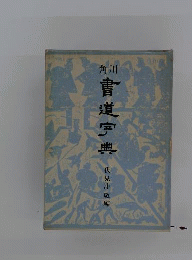 角川
書道字典
伏見冲敬編